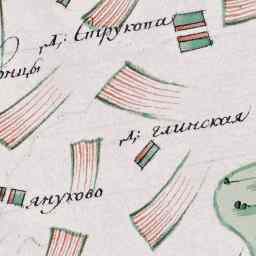 д: Струкопа
онцы
д: глинская
януково